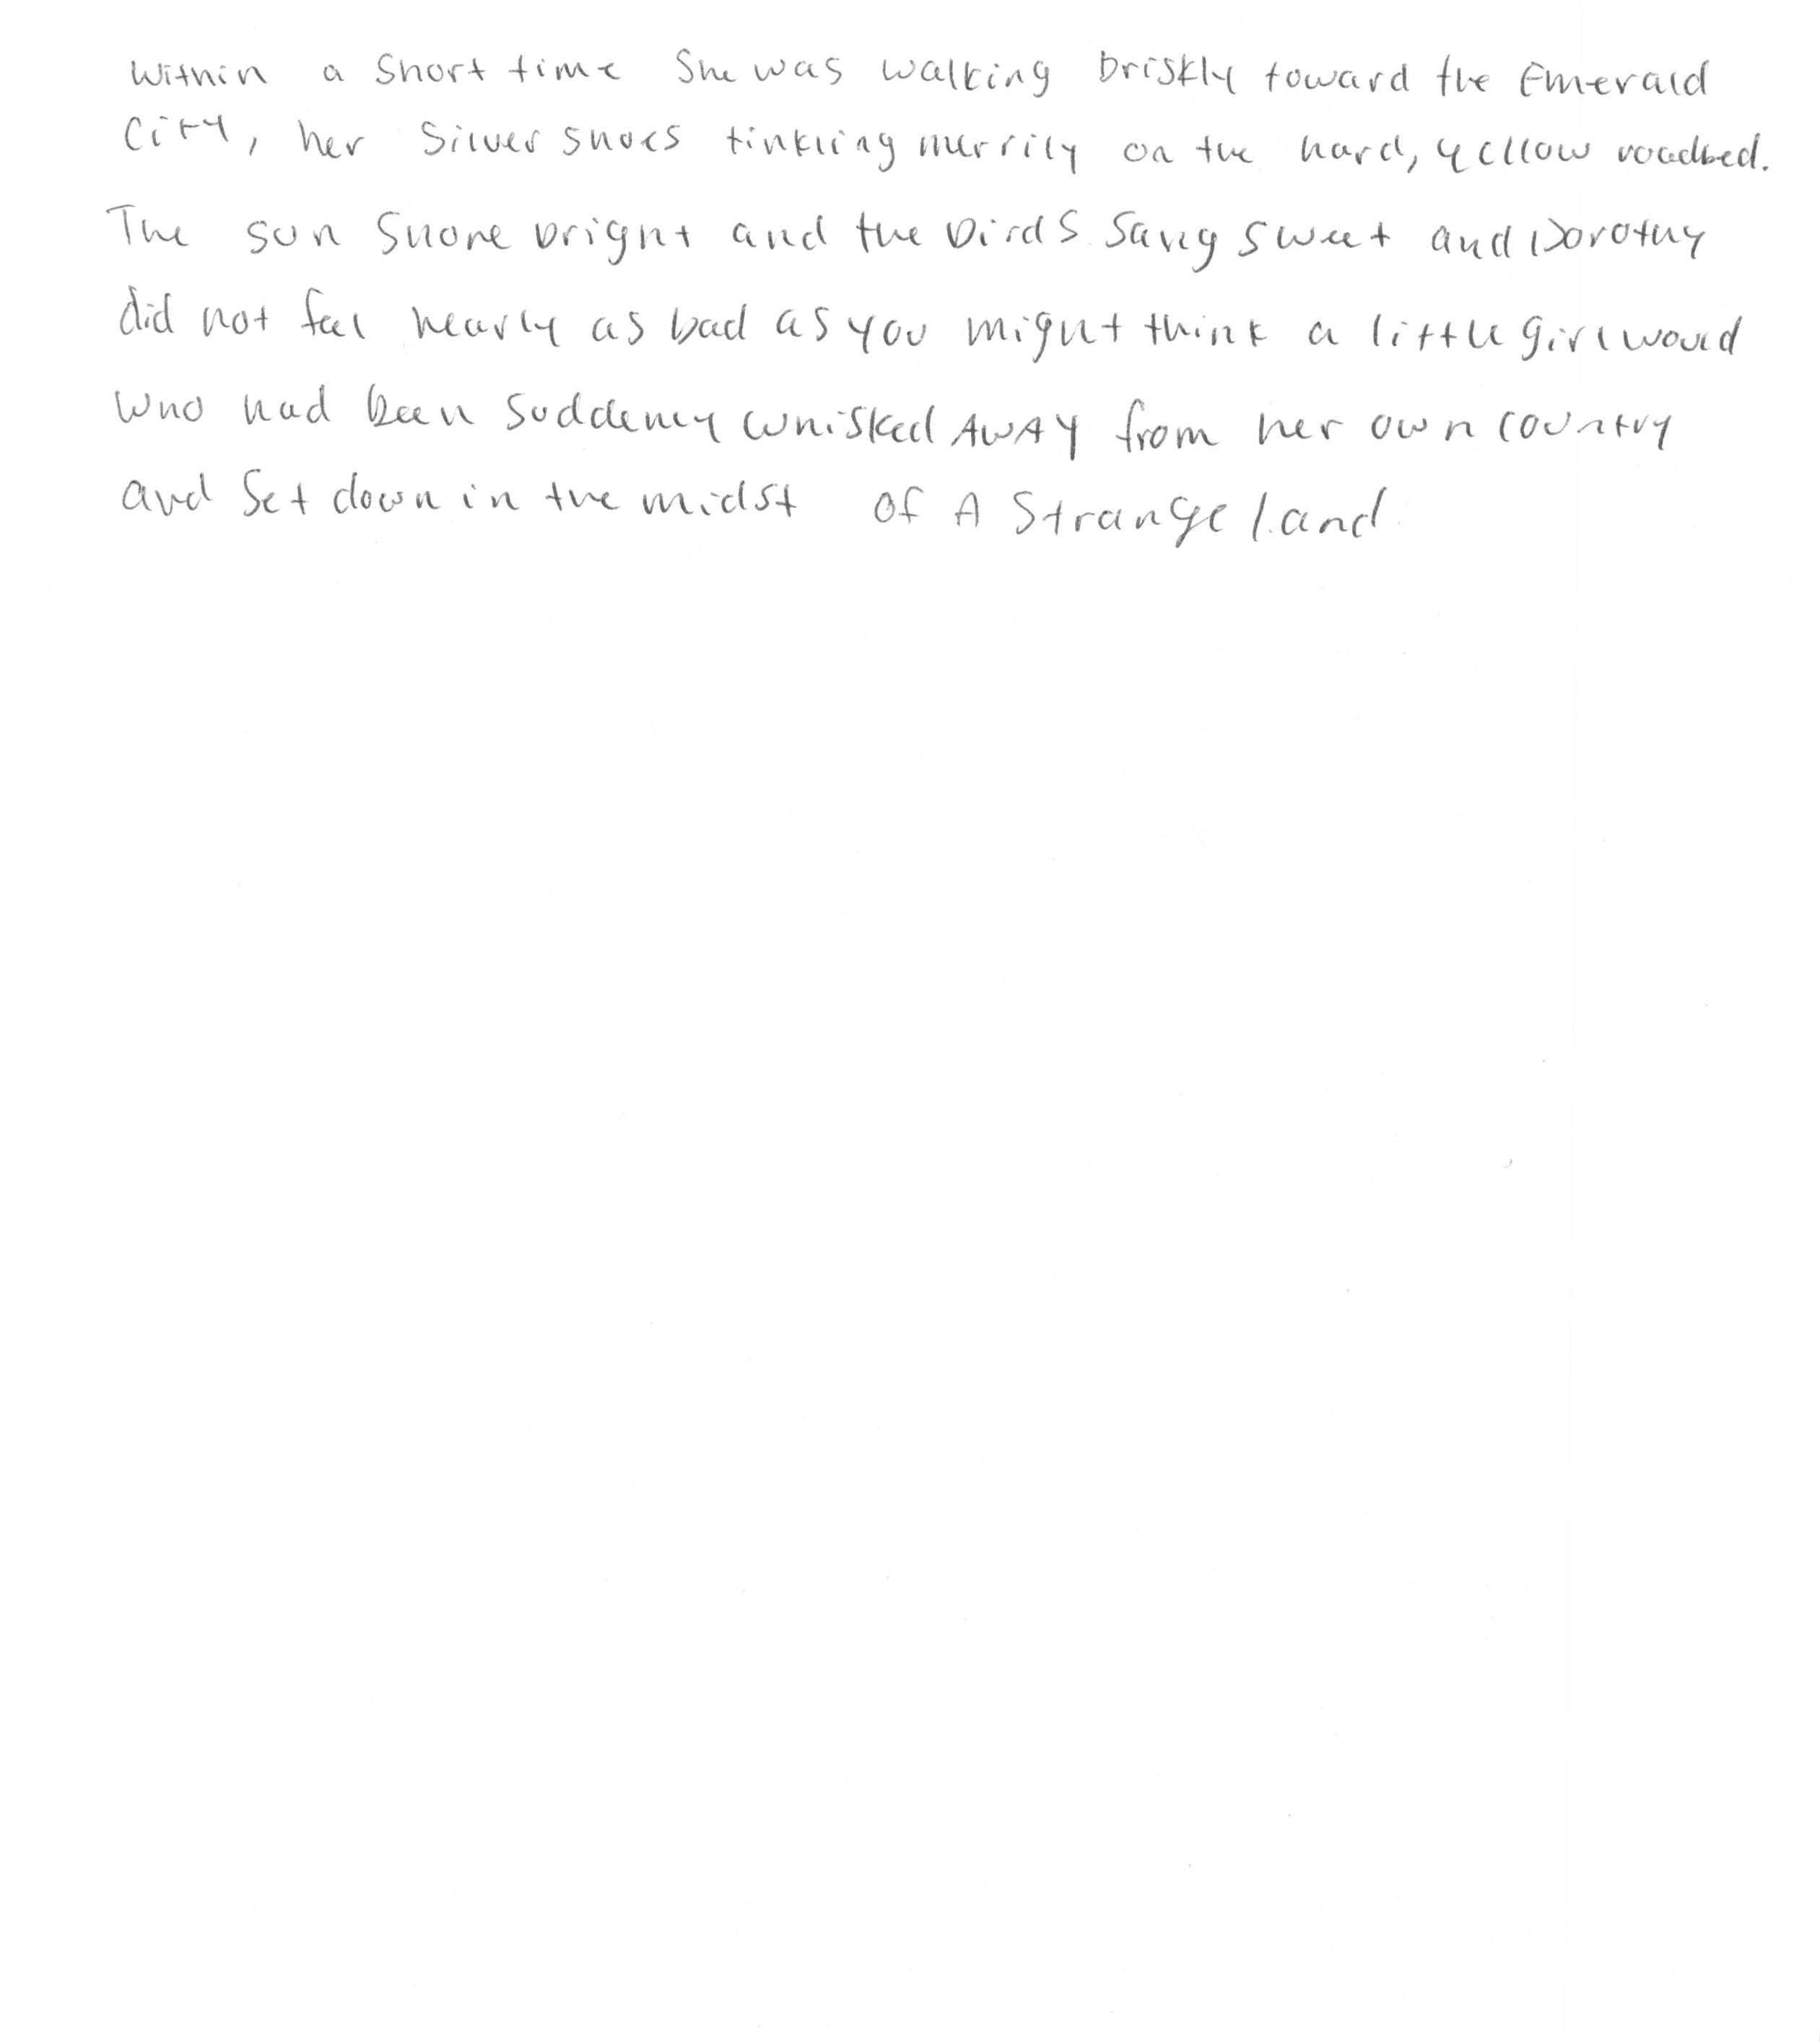 Within a short time she was walking briskly toward the Emerald
City, her Silver shoes tinkling merrily on the hard, yellow roadbed.
The sun shone bright and the birds sang sweet and Dorothy
did not feel nearly as bad as you might think a little girl would
who had been suddenly whisked AWAY from her own country
and set down in the midst of A Strange land